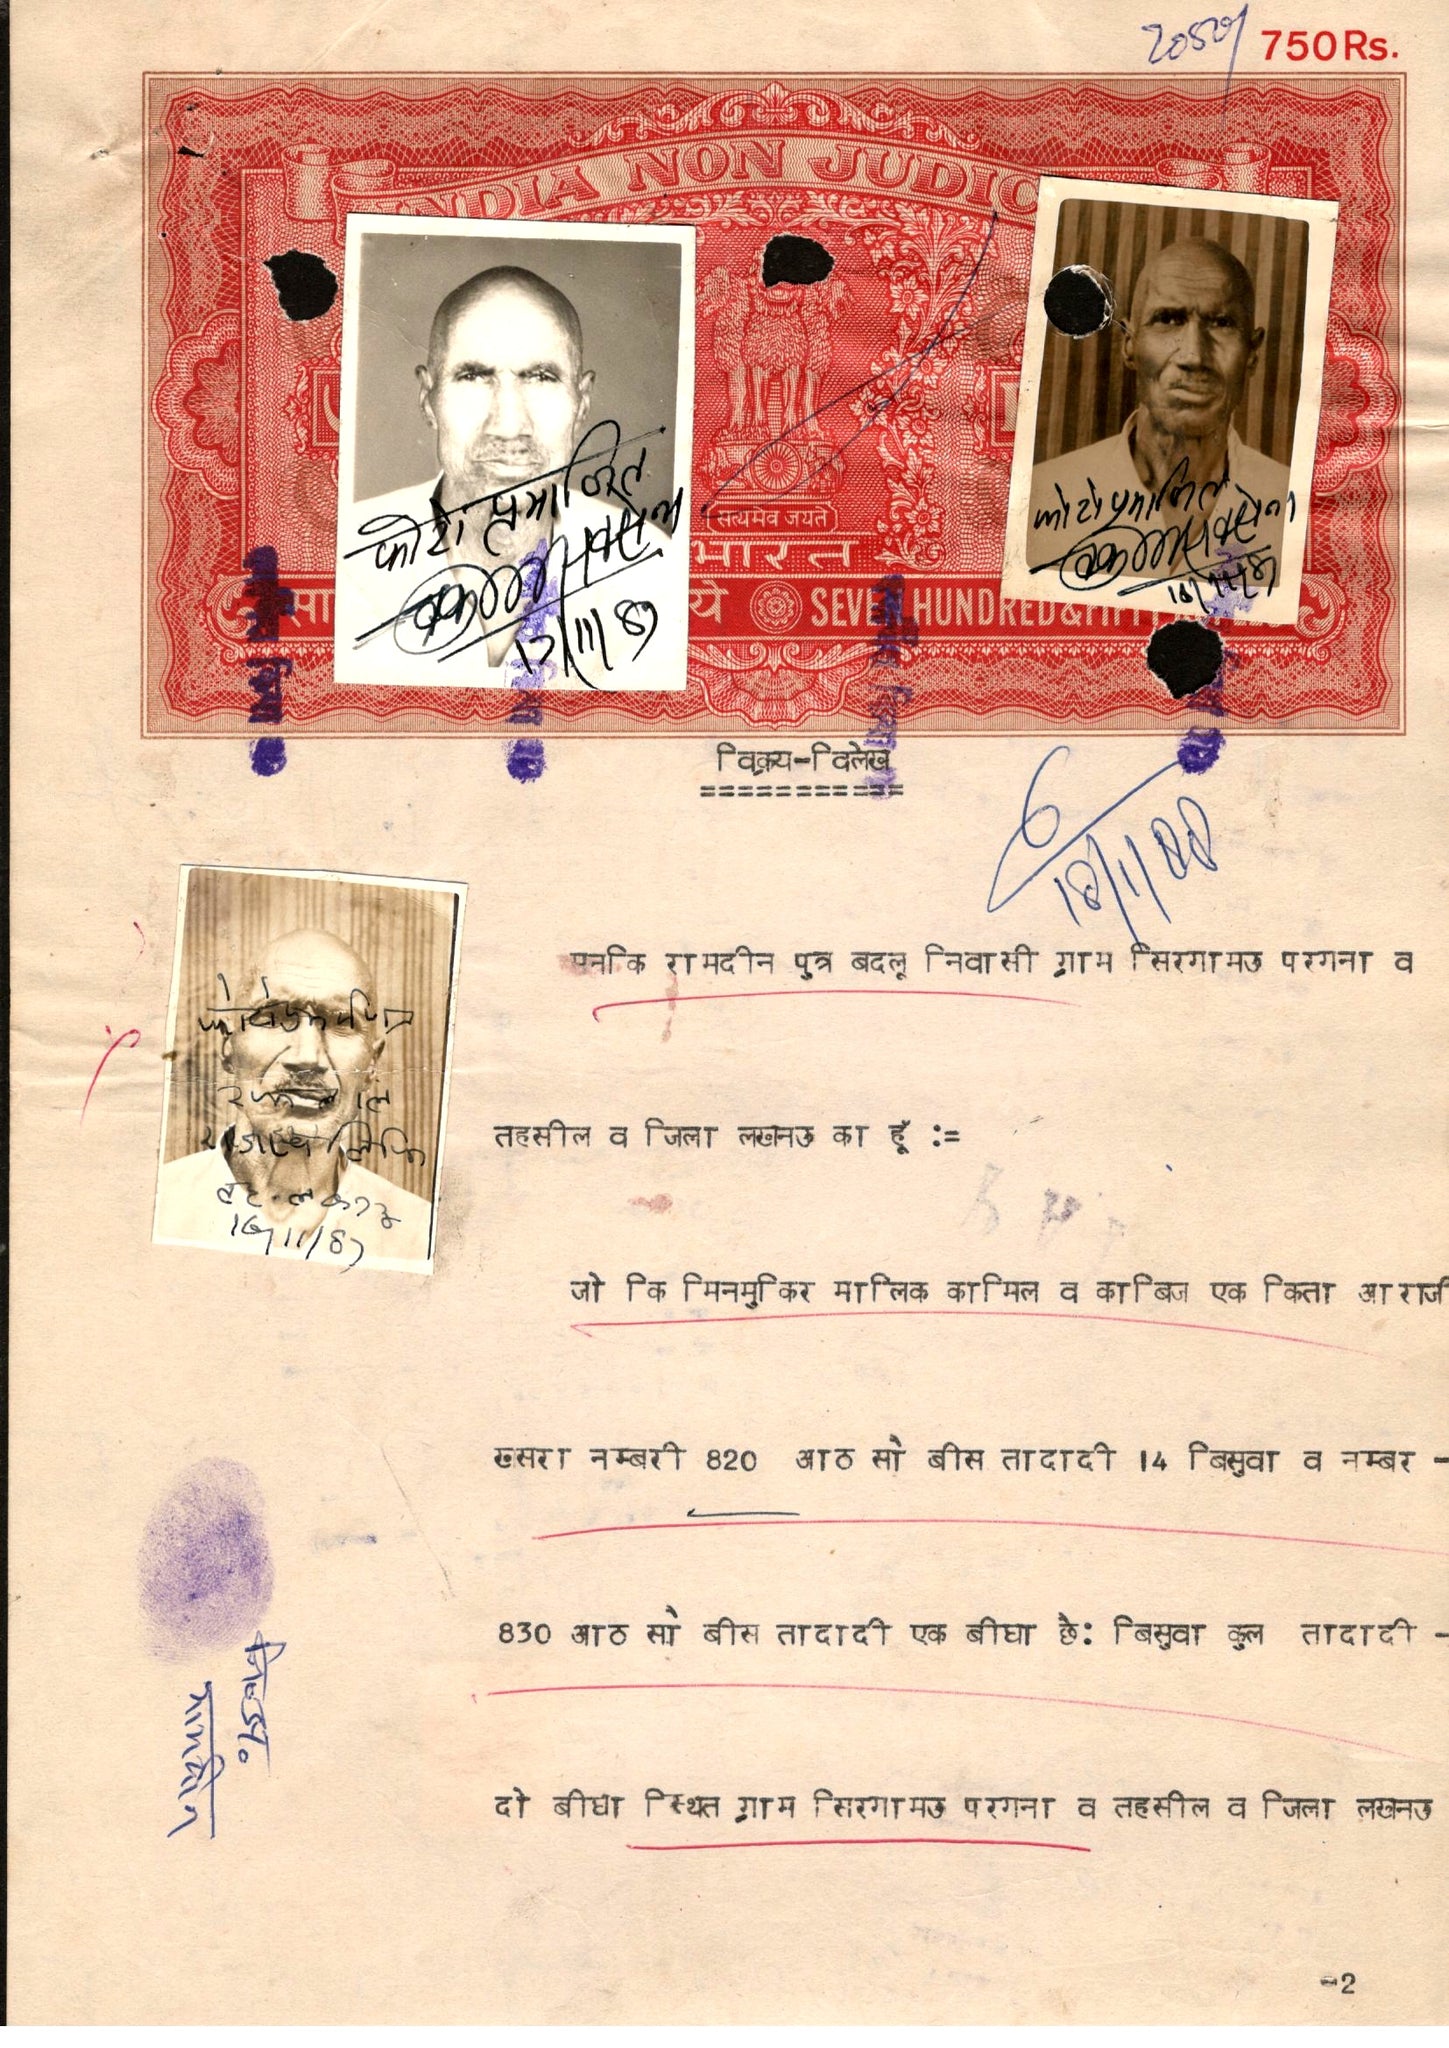 750Rs.
INDIA NON JUDIC
सत्यमेव जयते
भारत
सा
ये
SEVEN HUNDRED&
फोटो प्रमाणित
17/11/87
फोटो प्रमाणित
16/11/87
विक्रय-विलेख
18/1/88
मनकि रामदीन पुत्र बदलू निवासी ग्राम सिरगामउ परगना व
तहसील व जिला लखनउ का हूँ :=
16/11/87
जो कि मिनमुकिर मालिक कामिल व काबिज एक किता आराजी
खसरा नम्बरी 820 आठ सो बीस तादादी 14 बिसुवा व नम्बर -
830 आठ सो बीस तादादी एक बीघा छै: बिसुवा कुल तादादी -
दो बीघा स्थित ग्राम सिरगामउ परगना व तहसील व जिला लखनउ
रामदीन
-2